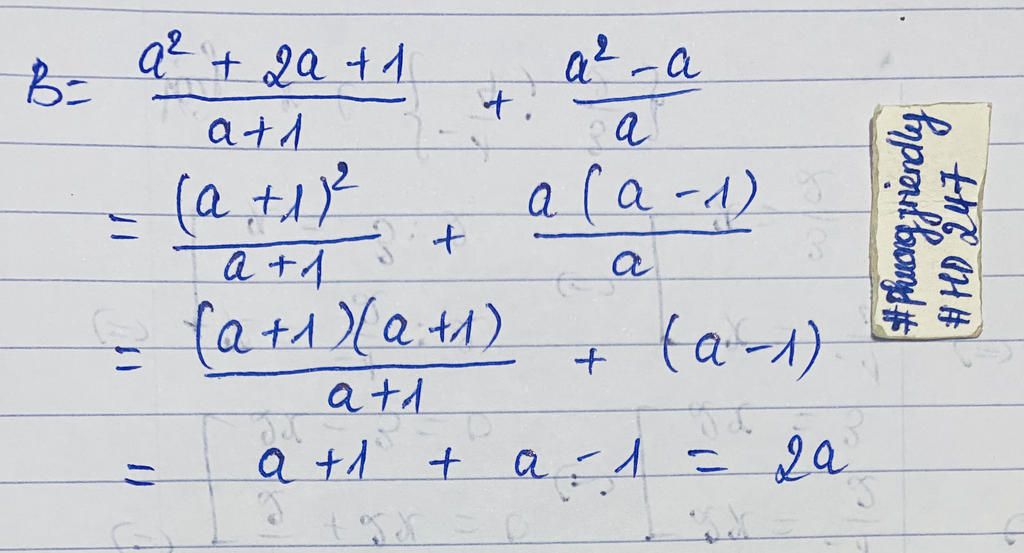 B = \frac{a² + 2a + 1}{a + 1} + \frac{a² - a}{a}
= \frac{(a + 1)²}{a + 1} + \frac{a(a - 1)}{a}
= \frac{(a + 1)(a + 1)}{a + 1} + (a - 1)
= a + 1 + a - 1 = 2a
#Phuongfriendly
#HD 247